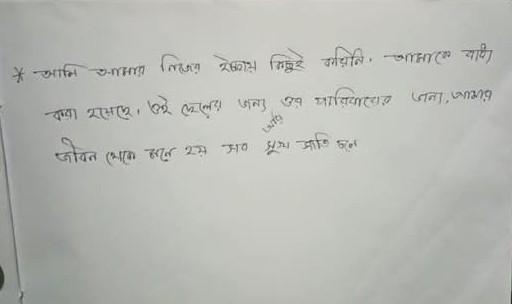 * আমি আমার নিজের ইচ্ছায় কিছুই করিনি। আমাকে বাধ্য
করা হয়েছে। ওই ছেলের জন্য ওর পরিবারের জন্য, আমার
জীবন থেকে মনে হয় সব সুখ শান্তি চলে